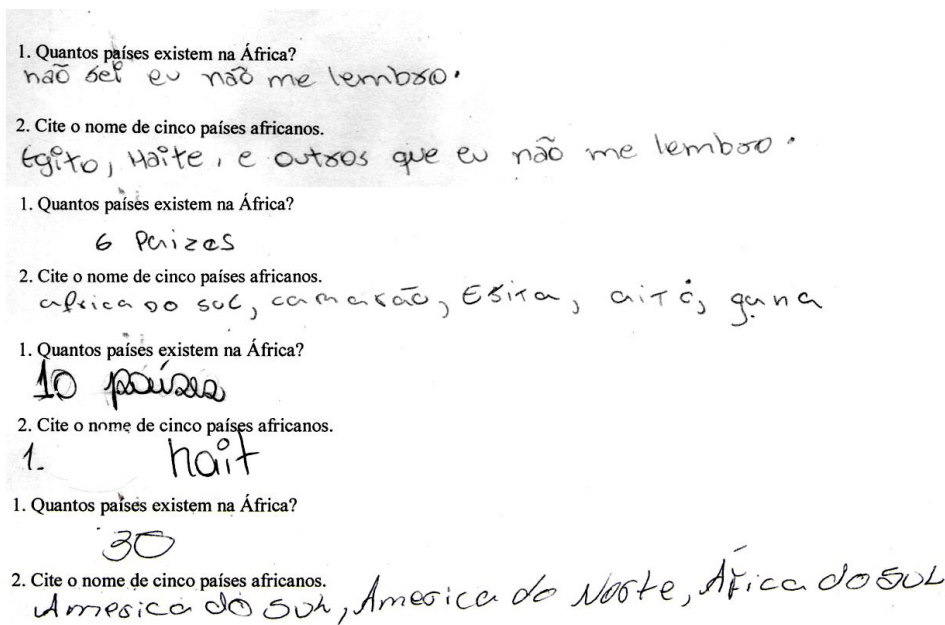 1. Quantos países existem na África?
não sei eu não me lembro.
2. Cite o nome de cinco países africanos.
Egito, Haite, e outros que eu não me lembro.
1. Quantos países existem na África?
6 Paizes
2. Cite o nome de cinco países africanos.
africa do sul, camarão, Esita, aité, gana
1. Quantos países existem na África?
10 países
2. Cite o nome de cinco países africanos.
1. hait
1. Quantos países existem na África?
30
2. Cite o nome de cinco países africanos.
America do Sul, America do Norte, África do SUL